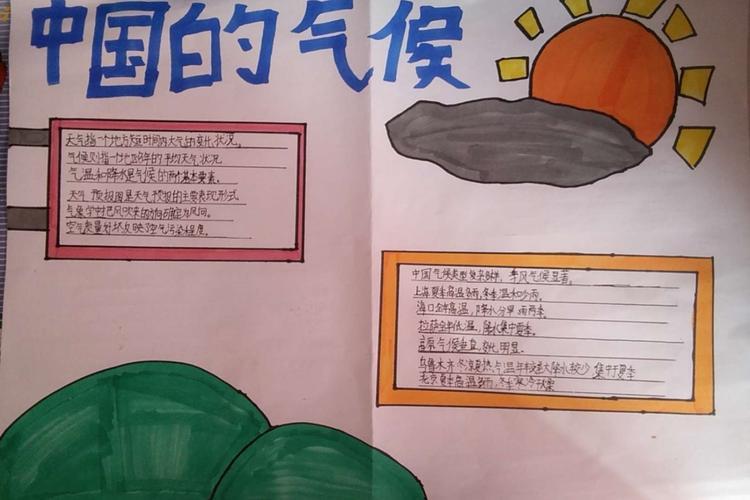 中国的气候
天气指一个地方短时间内大气的变化状况。
气候则指一个地区多年的平均天气状况
气温和降水是气候的两个基本要素。
天气预报图是天气预报的主要表现形式
气象学中把风吹来的方向确定为风向。
空气质量好坏反映了空气污染程度。
中国气候类型复杂多样，季风气候显著。
上海夏季高温多雨，冬季温和少雨。
海口全年高温，降水分旱雨两季。
拉萨全年低温，降水集中夏季。
高原气候垂直变化明显。
乌鲁木齐冬凉夏热，气温年较差大降水较少集中于夏季
北京夏季高温多雨，冬季寒冷干燥